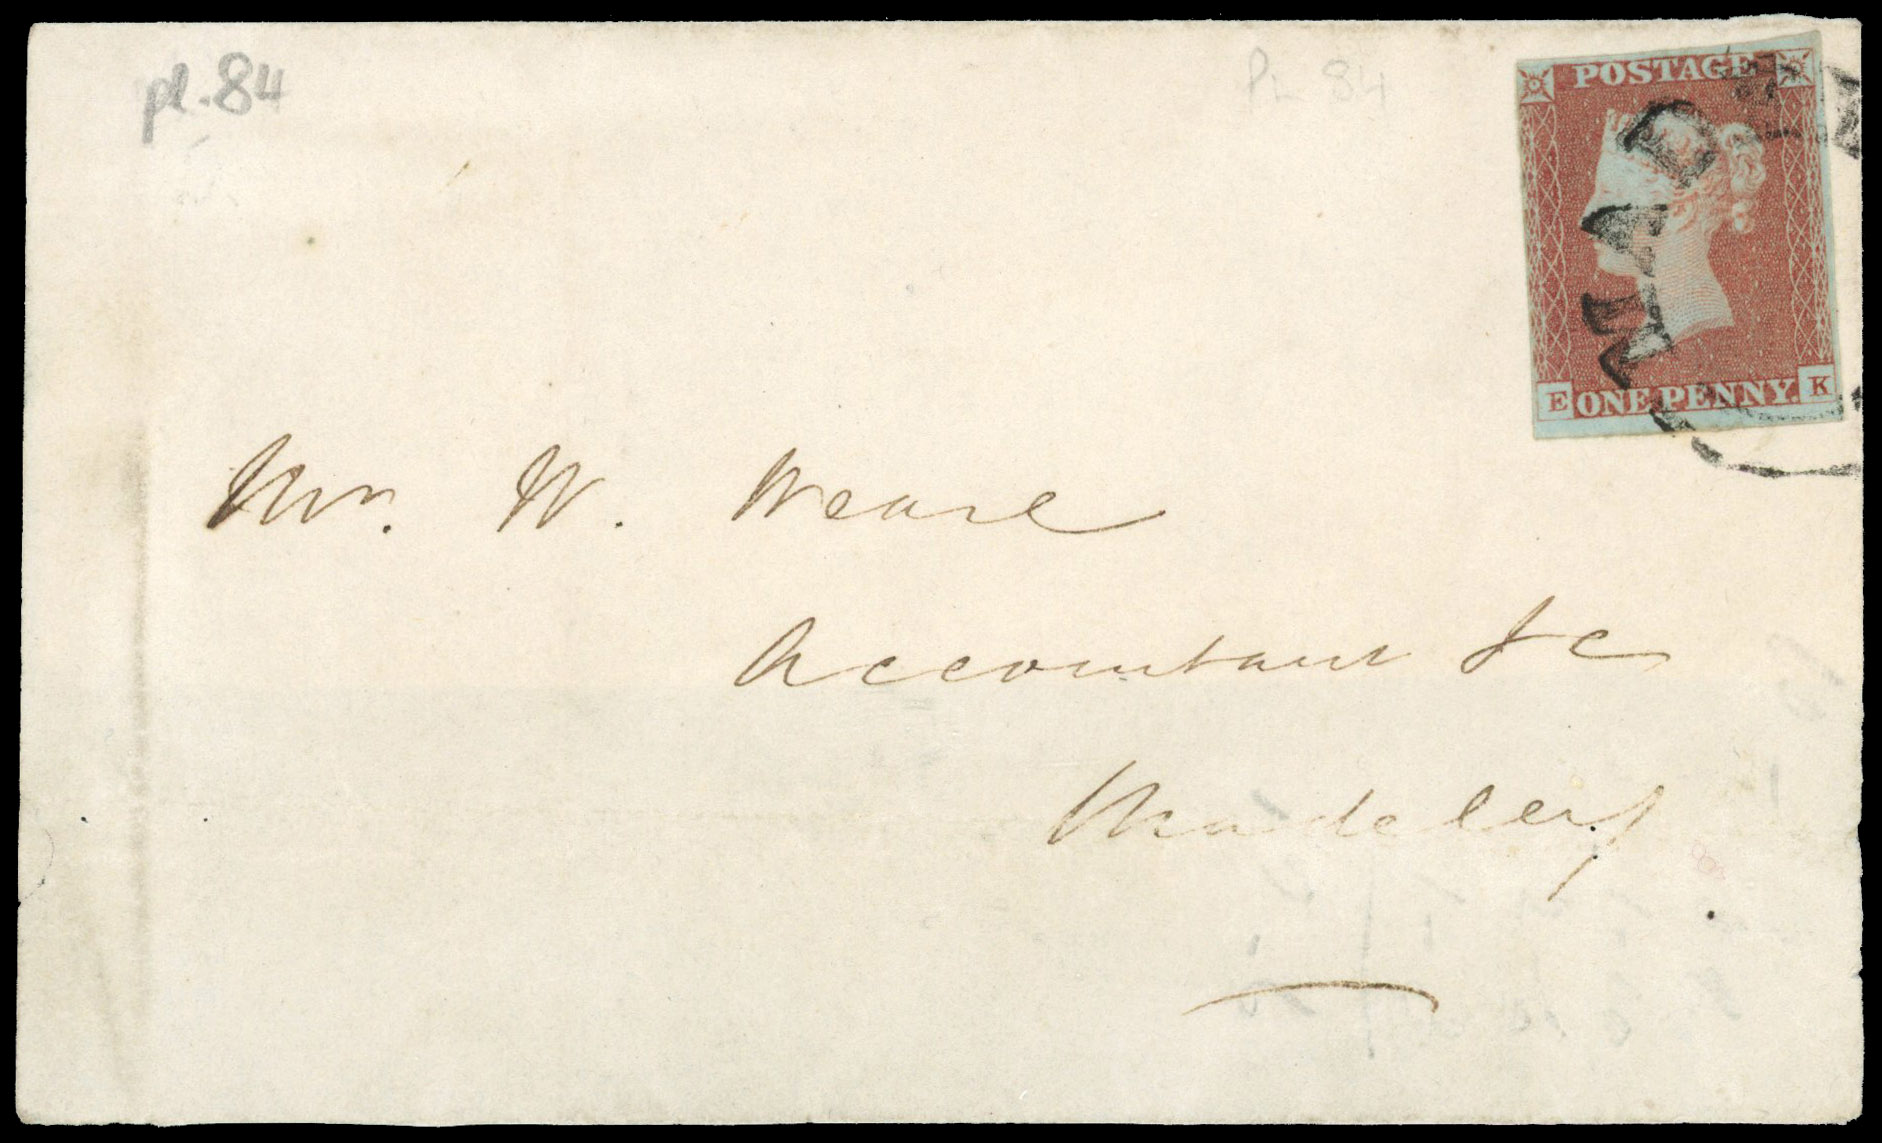 pl. 84
PL 84
POSTAGE
MADEL
E ONE PENNY. K
Mr. W. Weare
Accountant &c
Madeley